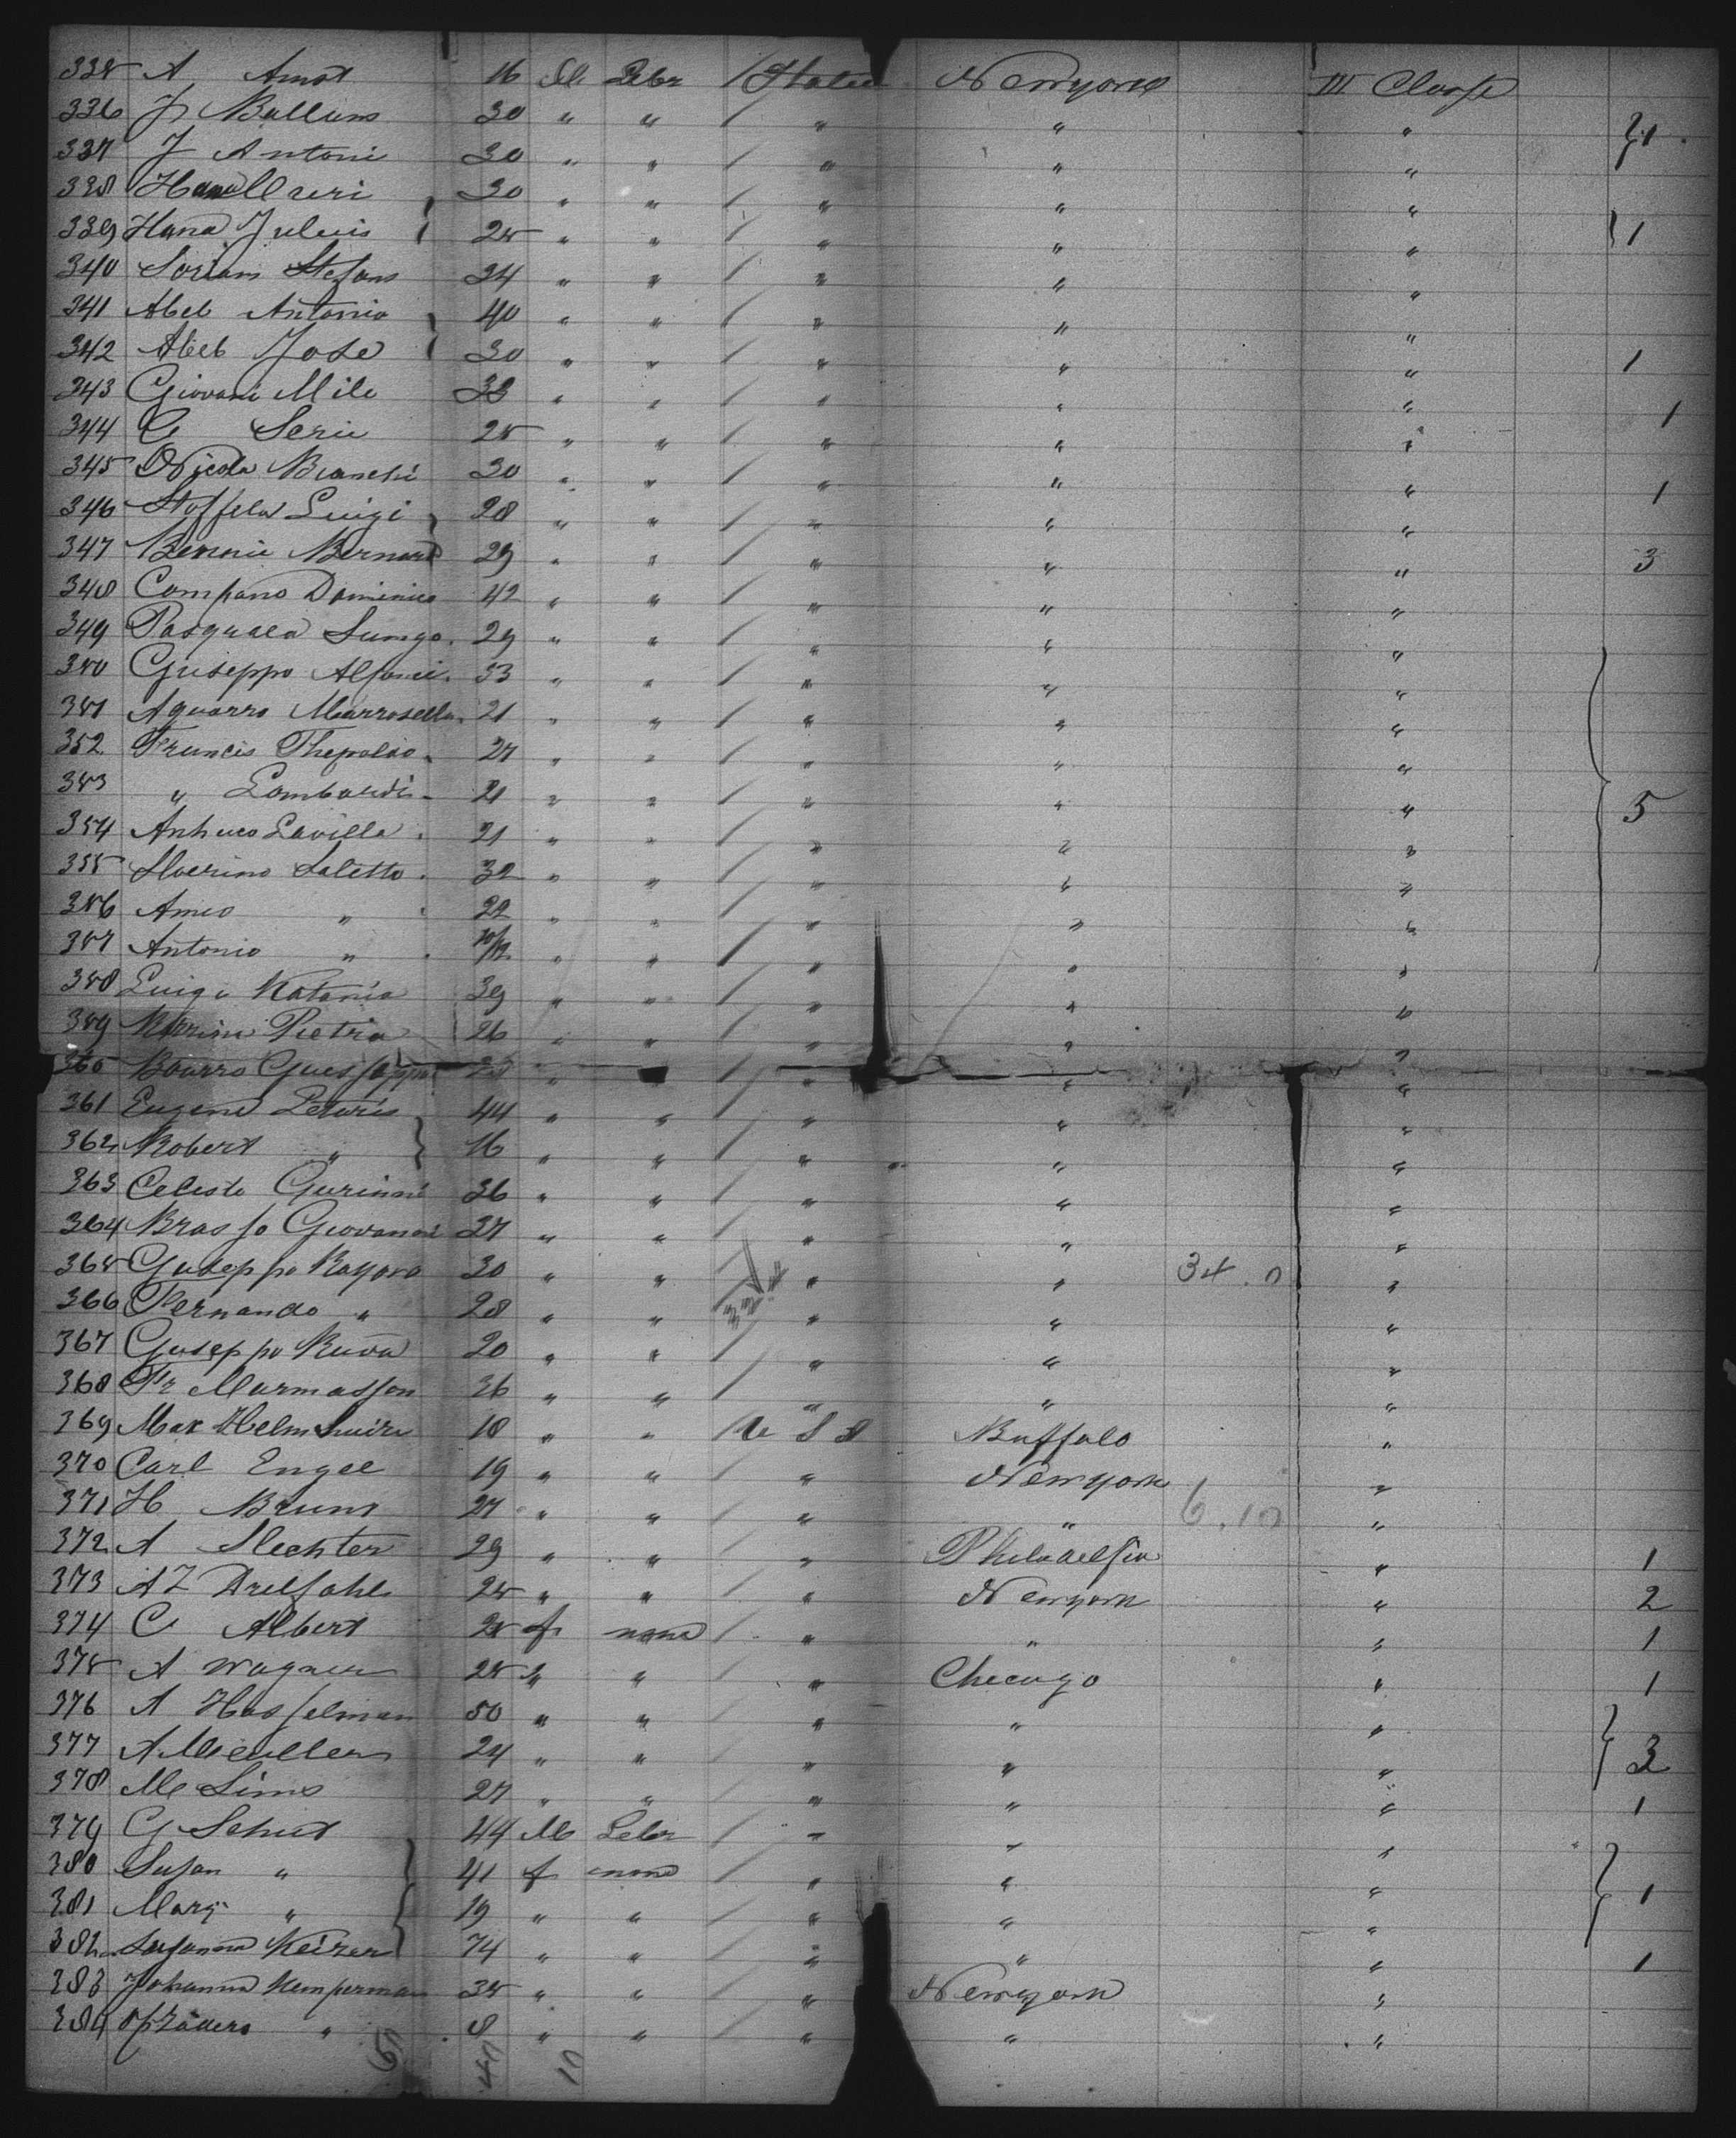 335 A Arnot 16 M Lebr / Italie Newyork III Classe
336 J Ballum 30 " " / " " "
337 J Antoni 30 " " / " " "
338 30 " " / " " "
339 Hana Julius 25 " " / " " " 1
340 Soriam Stefans 34 " " / " " "
341 Abeb Antonio 40 " " / " " "
342 Abeb Jose 30 " " / " " " 1
343 Giovani Mile 33 " " / " " " 1
344 G Serie 25 " " / " " "
345 Nicola Bianchi 30 " " / " " " 1
346 Stoffela Luigi 28 " " / " " "
347 Bennie Bernard 29 " " / " " " 3
348 Compano Dominico 42 " " / " " "
349 Pasquala Sungo 29 " " / " " "
350 Guiseppo Alfonsi 33 " " / " " "
351 Aquarro Marrosella 21 " " / " " "
352 Francis Thepolao 27 " " / " " "
353 " Lombardi 21 " " / " " " 5
354 Lavilla 21 " " / " " "
355 Saletto 32 " " / " " "
356 Ameo " 22 " " / " " "
357 Antonio " 10/12 " " / " " "
358 Luigi Katania 39 " " / " " "
359 Pietria 26 " " / " " "
360 Bourro 25 " " / " " "
361 Eugene 44 " " / " " "
362 Robert " 16 " " / " " "
363 Celesto Gurinni 36 " " / " " "
364 Brasso Giovanni 37 " " / " " "
365 Guseppo 30 " " / " " 34.0 "
366 Fernando " 28 " " / " " "
367 Guseppo Ruva 20 " " / " " "
368 Fr Murmasson 36 " " / " " "
369 Max 18 " " / U S S Buffalo "
370 Carl Engel 19 " " / " Newyork "
371 H Bruns 27 " " / " " 6.10 "
372 A Slechter 29 " " / " Philadelfia " 1
373 A Z Drelfahl 25 " " / " Newyork " 2
374 C Albert 25 f none / " " " 1
375 A Wagner 25 " " / " Checago " 1
376 A Hasselman 50 " " / " " "
377 A Meullers 24 " " / " " " 3
378 M Sims 27 " " / " " " 1
379 G Schut 44 M Lebr / " " "
380 Susan " 41 f none / " " "
381 Mary " 19 " " / " " " 1
382 Susanna Keizer 74 " " / " " " 1
383 Johanna Kemperman 35 " " / " Newyork "
384 " 8 " " / " " "